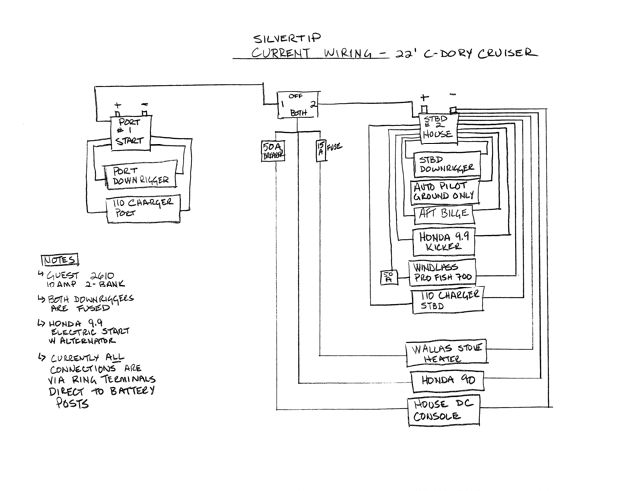 SILVERTIP
CURRENT WIRING - 22' C-DORY CRUISER
OFF
1 2
BOTH
+ -
PORT
# 1
START
PORT
DOWNRIGGER
110 CHARGER
PORT
50A
BREAKER
15
A
FUSE
+ -
STBD
# 2
HOUSE
STBD
DOWNRIGGER
AUTO PILOT
GROUND ONLY
AFT BILGE
HONDA 9.9
KICKER
50
A
WINDLASS
PRO FISH 700
110 CHARGER
STBD
WALLAS STOVE
HEATER
HONDA 90
HOUSE DC
CONSOLE
NOTES
↳ GUEST 2610
10 AMP 2-BANK
↳ BOTH DOWNRIGGERS
ARE FUSED
↳ HONDA 9.9
ELECTRIC START
W ALTERNATOR
↳ CURRENTLY ALL
CONNECTIONS ARE
VIA RING TERMINALS
DIRECT TO BATTERY
POSTS